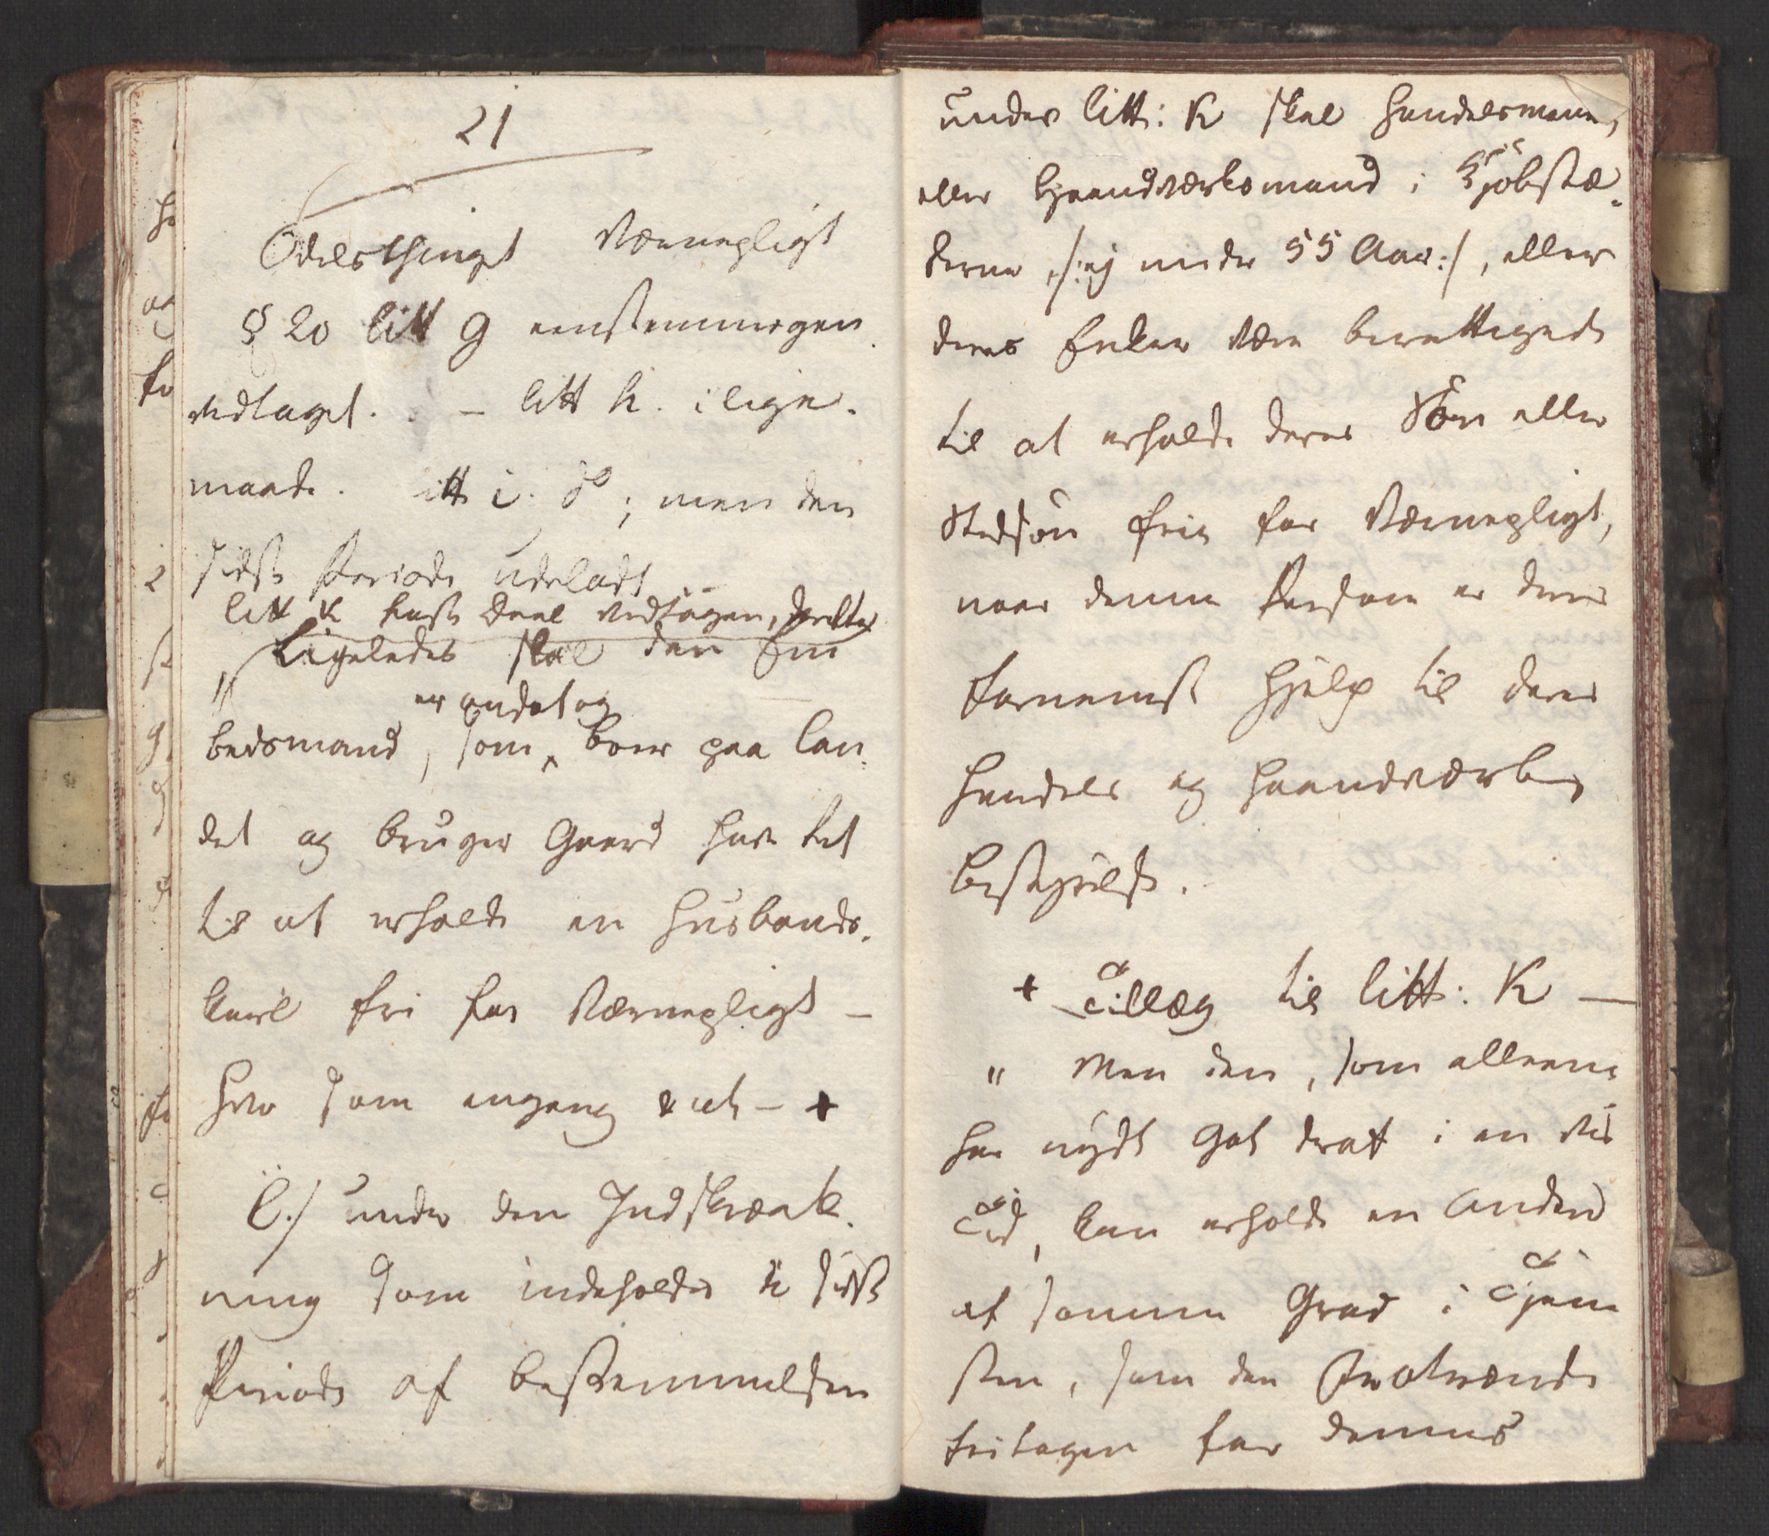 21
Odelsthinget Værnepligt
§ 20 litt g eenstemmigen
vedtaget. – litt h. i lige-
maade. litt i. do; men den
sidste Periode udeladt
litt k første Deel vedtagen, derefter
" Ligeledes skal den Em
bedsmand, som er andet og boer paa Lan-
det og bruger Gaard have Ret
til at erholde en Huusbonds-
karl fri for Værnepligt –
hvo som engang etc – +
l.) under den Indskrænk-
ning som indeholdes i sidste
Periode af Bestemmelsen
under litt: K skal Handelsmænd,
eller Haandværksmænd i Kjøbstæ-
derne, /: ej under 55 Aar :/, eller
deres Enker være berettigede
til at erholde deres Søn eller
Stedsøn frie for Værnepligt,
naar denne Person er deres
fornemste Hjelp til deres
Handels og Haandværks
Bestyrelse.
+ Tillæg til litt: K –
" Men den, som alleene
har nydt godt deraf i en vis
Tid, kan erholde en Anden
af samme Grad i Tjene
sten, som den
fritagen for dennes